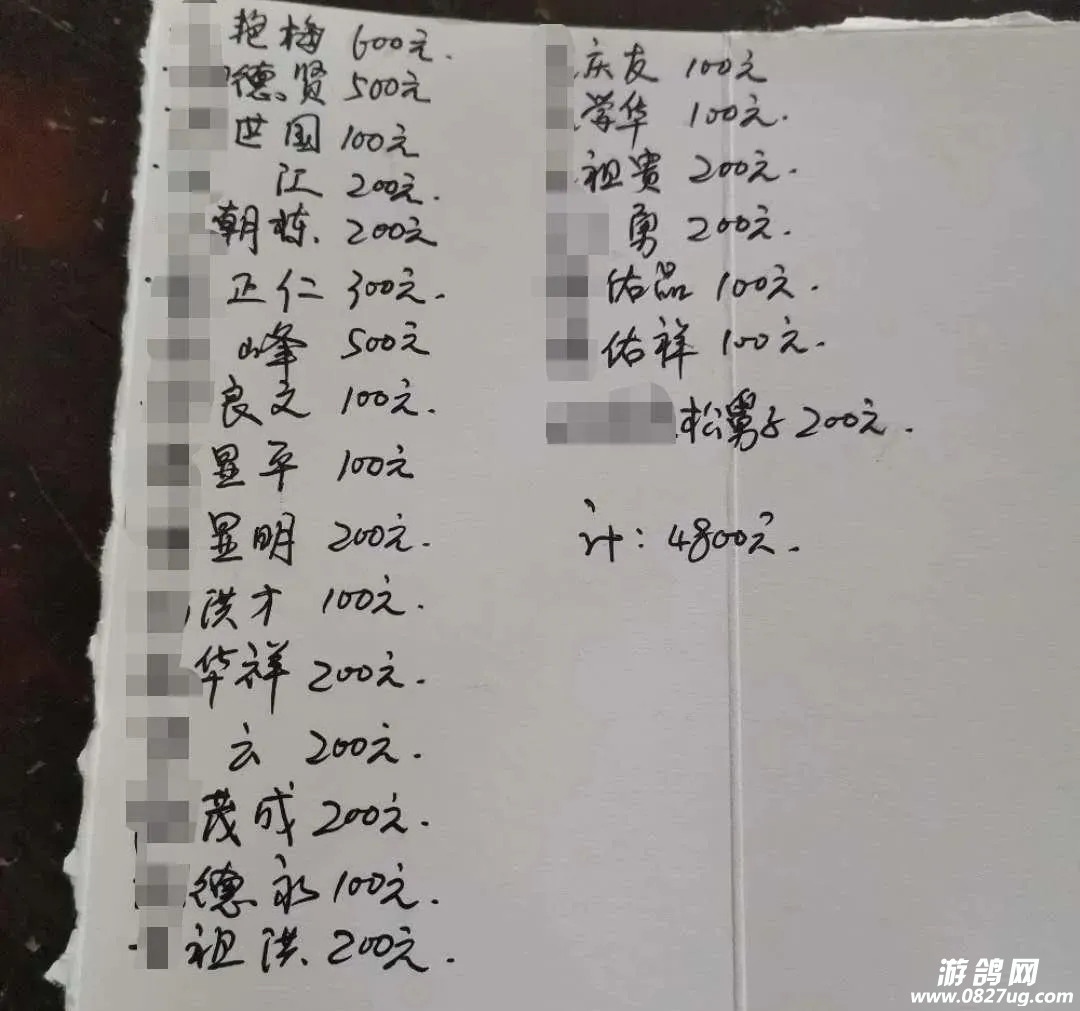 艳梅 600元.
德贤 500元
世国 100元
江 200元.
朝栋. 200元
正仁 300元.
山峰 500元
良文 100元.
显平 100元
显明 200元.
洪才 100元.
华祥 200元.
云 200元.
茂成 200元.
德永 100元.
祖洪 200元.
庆友 100元
学华 100元.
祖贵 200元.
勇 200元.
佑品 100元.
佑祥 100元.
松舅子 200元.
计: 4800元.
游鸽网
www.0827ug.com